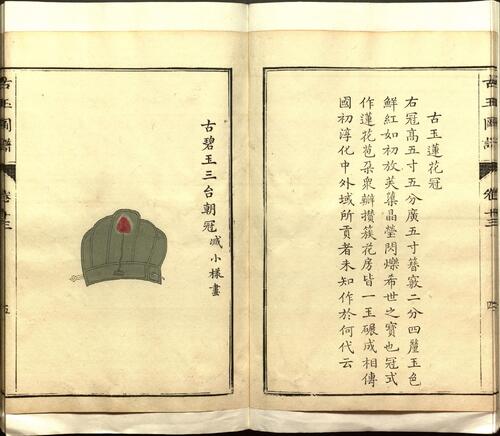 古玉圖譜
卷十三
四
古玉蓮花冠
右冠高五寸五分廣五寸簪竅二分四釐玉色
鮮紅如初放芙蕖晶瑩閃爍希世之寶也冠式
作蓮花苞朶衆瓣攢簇花房皆一玉碾成相傳
國初淳化中外域所貢者未知作於何代云
古碧玉三台朝冠 减小樣畫
古玉圖譜
卷十三
五